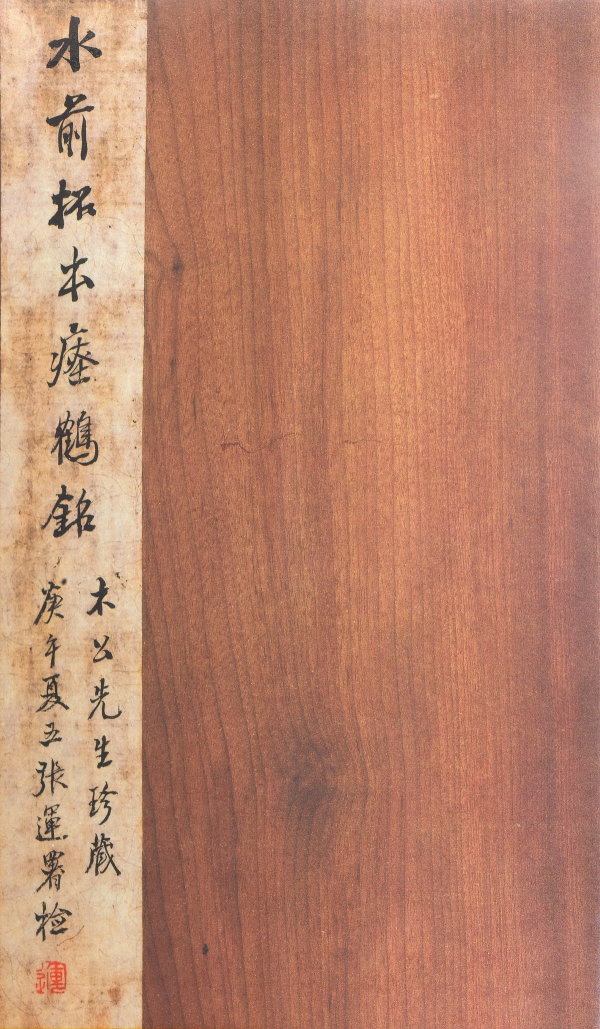 水前拓本瘗鶴銘
木公先生珍藏
庚午夏五張運署檢
運